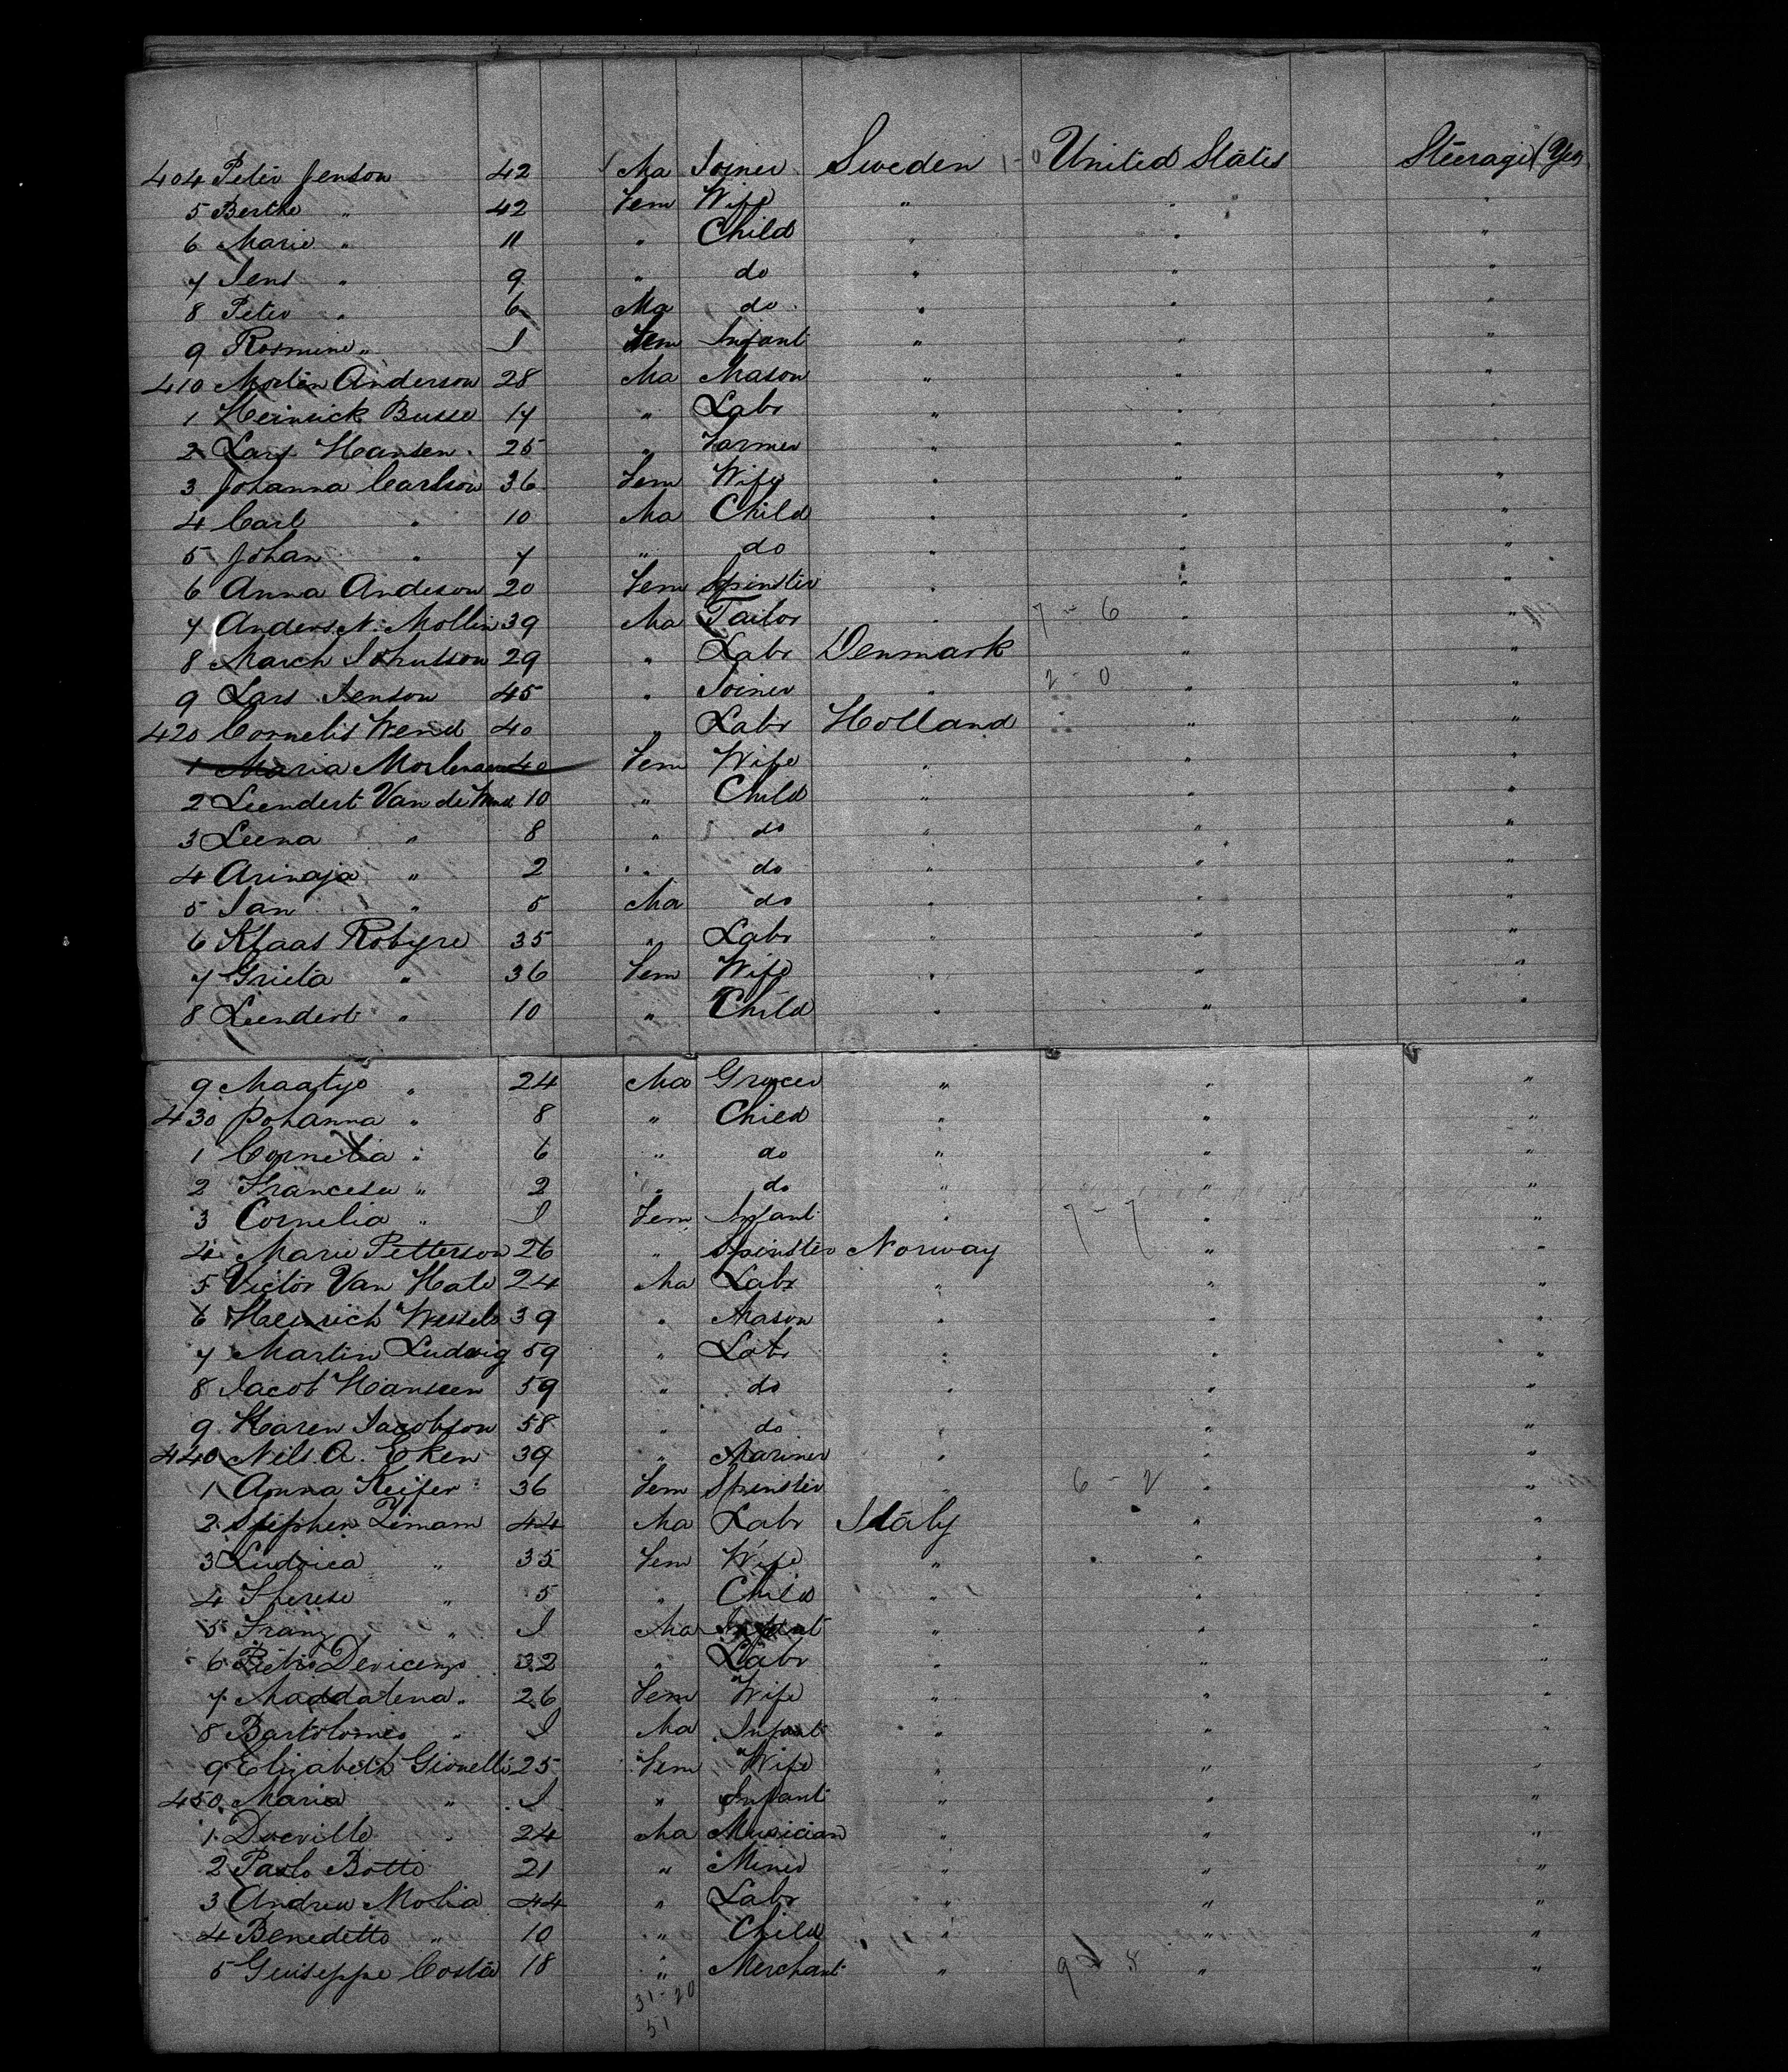 404 Peter Jenson 42 Ma Joiner Sweden 1-0 United States Steerage Yes
5 Berthe " 42 Fem Wife " " "
6 Marie " 11 " Child " " "
7 Jens " 9 " do " " "
8 Peter " 6 Ma do " " "
9 Rosmine " I Fem Infant " " "
410 Morten Anderson 28 Ma Mason " " "
1 Heinrick Busse 17 " Labr " " "
2 Lars Hansen 25 " Farmer " " "
3 Johanna Carlson 36 Fem Wife " " "
4 Carl " 10 Ma Child " " "
5 Johan " 7 " do " " "
6 Anna Andeson 20 Fem Spinster " " "
7 Anders N. Mollin 39 Ma Tailor " 7-6 " "
8 March Johnsson 29 " Labr Denmark " "
9 Lars Jenson 45 " Joiner " 2-0 " "
420 Cornelis Wend 40 " Labr Holland " "
1 Maria 40 Fem Wife " " "
2 Leendert Van de Wend 10 " Child " " "
3 Leena " 8 " do " " "
4 Arinaja " 2 " do " " "
5 Jan " 5 Ma do " " "
6 Klaas Robyre 35 " Labr " " "
7 Grieta " 36 Fem Wife " " "
8 Leendert " 10 " Child " " "
9 Maatye " 24 Ma Grocer " " "
430 Johanna " 8 " Child " " "
1 Cornelia " 6 " do " " "
2 Francesa " 2 " do " " "
3 Cornelia " I Fem Infant " 7-7 " "
4 Marie Petterson 26 " Spinster Norway " "
5 Victor Van Hate 24 Ma Labr " " "
6 Heinrich Wessels 39 " Mason " " "
7 Martin Ludwig 59 " Labr " " "
8 Jacob Hansen 59 " do " " "
9 Karen Jacobson 58 " do " " "
440 Nils A. Eken 39 " Mariner " " "
1 Anna Keifer 36 Fem Spinster " 6-2 " "
2 Stephen Zimam 44 Ma Labr Italy " "
3 Ludvica " 35 Fem Wife " " "
4 Therese " 5 " Child " " "
5 Franz " I Ma Infant " " "
6 Pietro Devicenzo 32 " Labr " " "
7 Maddalena " 26 Fem Wife " " "
8 Bartolomeo " I Ma Infant " " "
9 Elizabeth Gionelli 25 Fem Wife " " "
450 Maria " I " Infant " " "
1 " 24 Ma Musician " " "
2 Paolo Botto 21 " Miner " " "
3 Andrea Molia 44 " Labr " " "
4 Benedetto " 10 " Child " " "
5 Guiseppe Costa 18 " Merchant " 9 8 " "
31-20
51